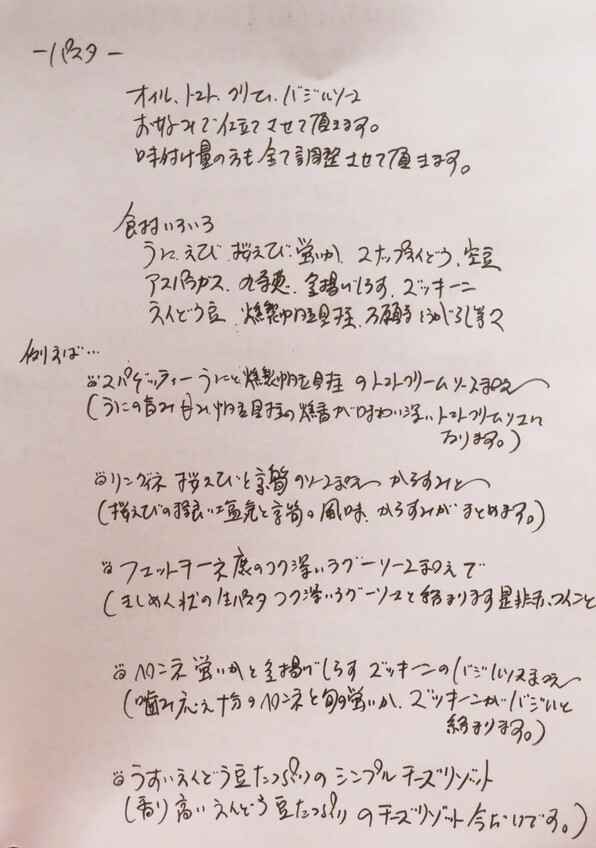 ーパスター
オイル、トマト、クリーム、バジルソース
お好みで仕立てさせて頂きます。
味付け量の方も全て調整させて頂きます。
食材いろいろ
うに、えび、桜えび、蛍いか、スナップえんどう、空豆
アスパラガス、九条葱、釜揚げしらす、ズッキーニ
えんどう豆、燻製帆立貝柱、万願寺とうがらし等々
例えば…
スパゲッティー うにと燻製帆立貝柱のトマトクリームソースまぜあえ〜
(うにの旨み甘み帆立貝柱の燻香が味わい深いトマトクリームソースに
なります。)
リングイネ 桜えびと のソースまぜあえ〜 からすみと〜
(桜えびの 良い塩気と の風味、からすみがまとめます。)
フェットチーネ 鹿のコク深いラグーソースまぜあえで
(きしめん状の生パスタ コク深いラグーソースと絡まります是非赤ワインと
ペンネ 蛍いかと釜揚げしらす ズッキーニのバジルソースまぜあえ〜
(噛み応え十分のペンネと旬の蛍いか、ズッキーニがバジルと
絡まります。)
うすいえんどう豆たっぷりの シンプルチーズリゾット
(香り高いえんどう豆たっぷりのチーズリゾット今だけです。)